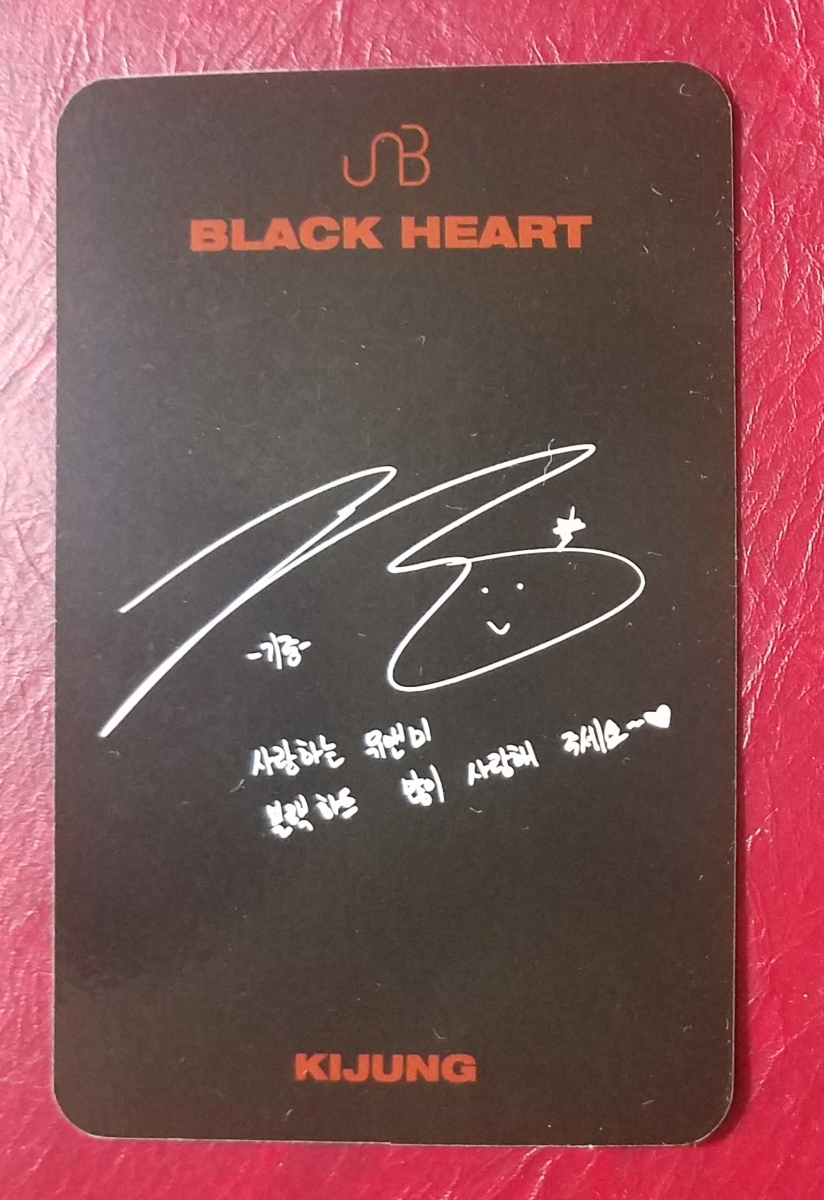 UNB
BLACK HEART
-기중-
사랑하는 유앤미
블랙하트 많이 사랑해 주세요~♥
KIJUNG